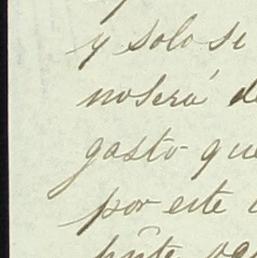 y solo si
no será de
gasto que
por este